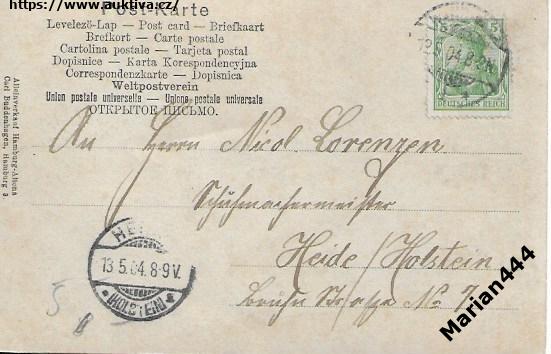 https://www.auktiva.cz/
Post-Karte
Levelező-Lap — Post card — Briefkaart
Brefkort — Carte postale
Cartolina postale — Tarjeta postal
Dopisnice — Karta Korespondencyjna
Correspondenzkarte — Dopisnica
Weltpostverein
Union postale universelle — Unione postale universale
ОТКРЫТОЕ ПИСЬМО.
Alleinverkauf Hamburg-Altona
Carl Buddenhagen, Hamburg 3
5
DEUTSCHES REICH
An Herrn Nicol. Lorenzen
Schuhmachermeister
Heide / Holstein
Straße No 7
13.5.04.8-9V.
(HOLSTEIN)
5
6
Marian444